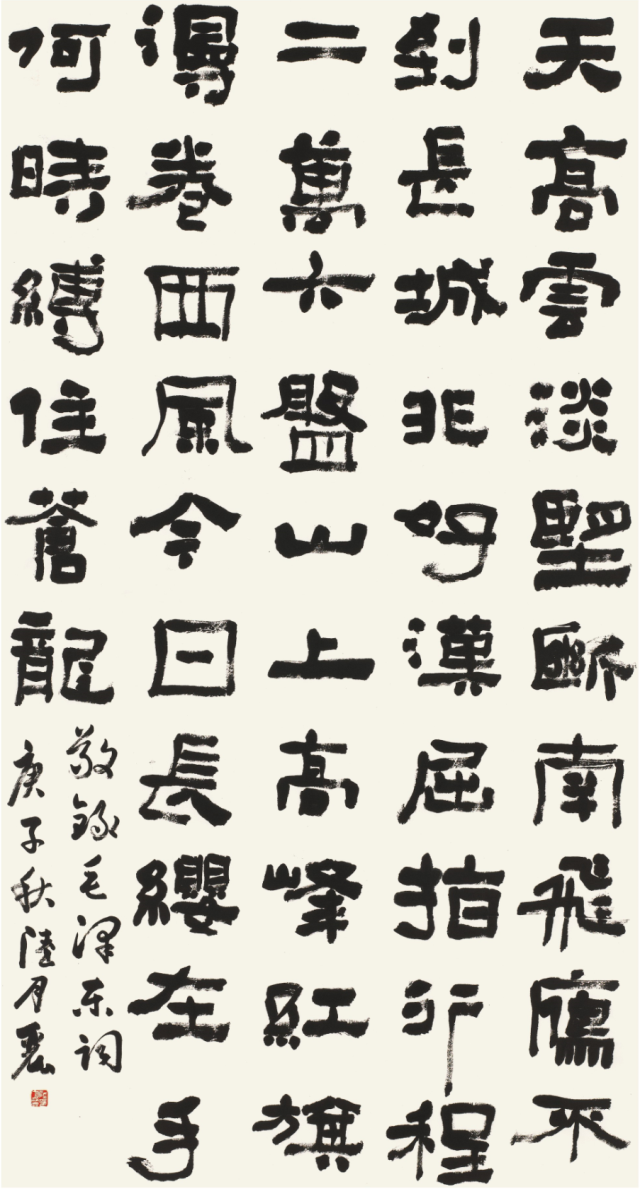 天高雲淡朢斷南飛鴈不
到長城非好漢屈指行程
二萬六盤山上高峰紅旗
漫卷西風今日長纓在手
何時縛住蒼龍
敬錄毛澤東詞
庚子秋陸